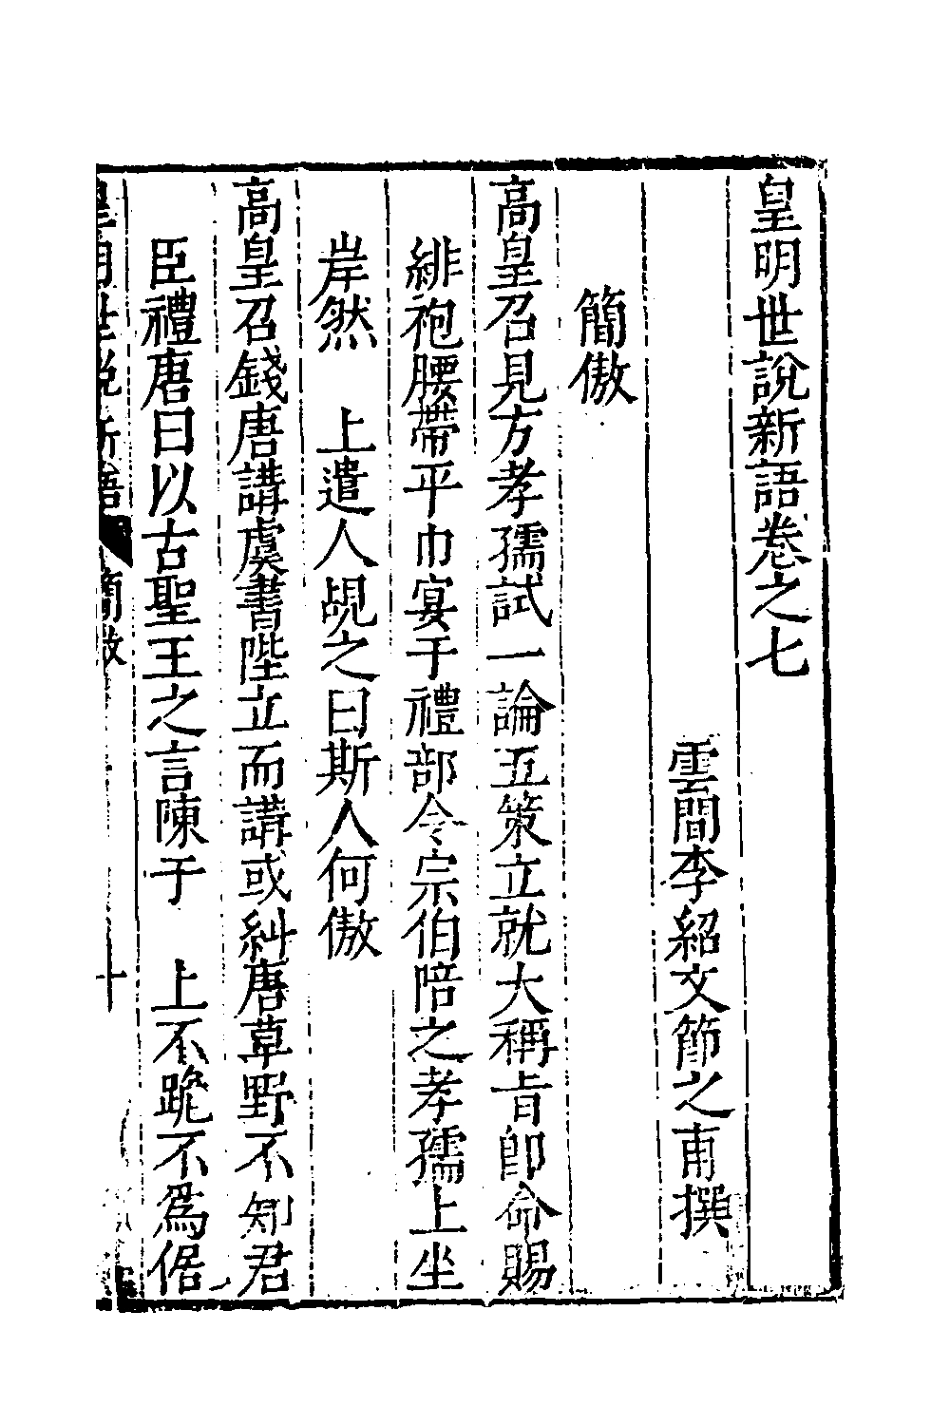 皇明世說新語卷之七
雲間李紹文節之甫撰
簡傲
高皇召見方孝孺試一論五策立就大稱旨卽命賜
緋袍腰帶平巾宴于禮部令宗伯陪之孝孺上坐
岸然　上遣人覘之曰斯人何傲
高皇召錢唐講虞書陛立而講或糾唐草野不知君
臣禮唐曰以古聖王之言陳于　上不跪不爲倨
皇明世說新語　簡傲